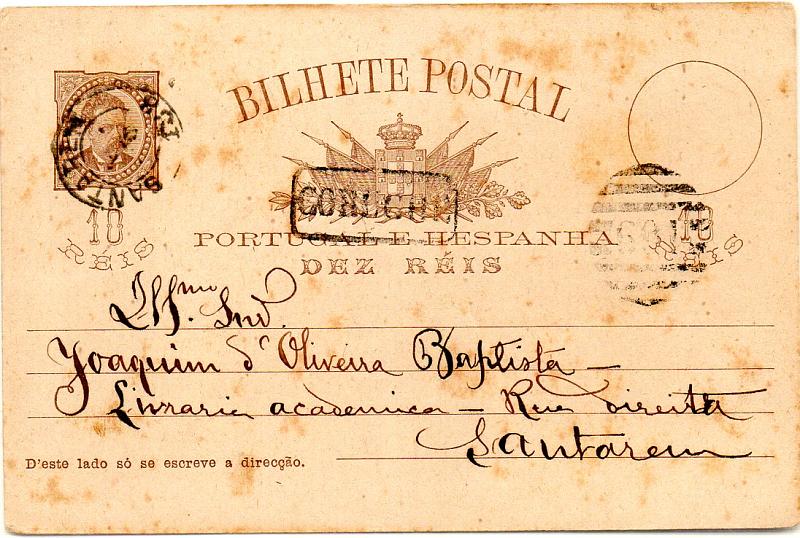 BILHETE POSTAL
SANTAREM
PORTUGAL E HESPANHA
10 RÉIS
10 RÉIS
DEZ RÉIS
Illmo. Snr.
Joaquim d'Oliveira Baptista —
Livraria academica — Rua direita
Santarem
D'este lado só se escreve a direcção.